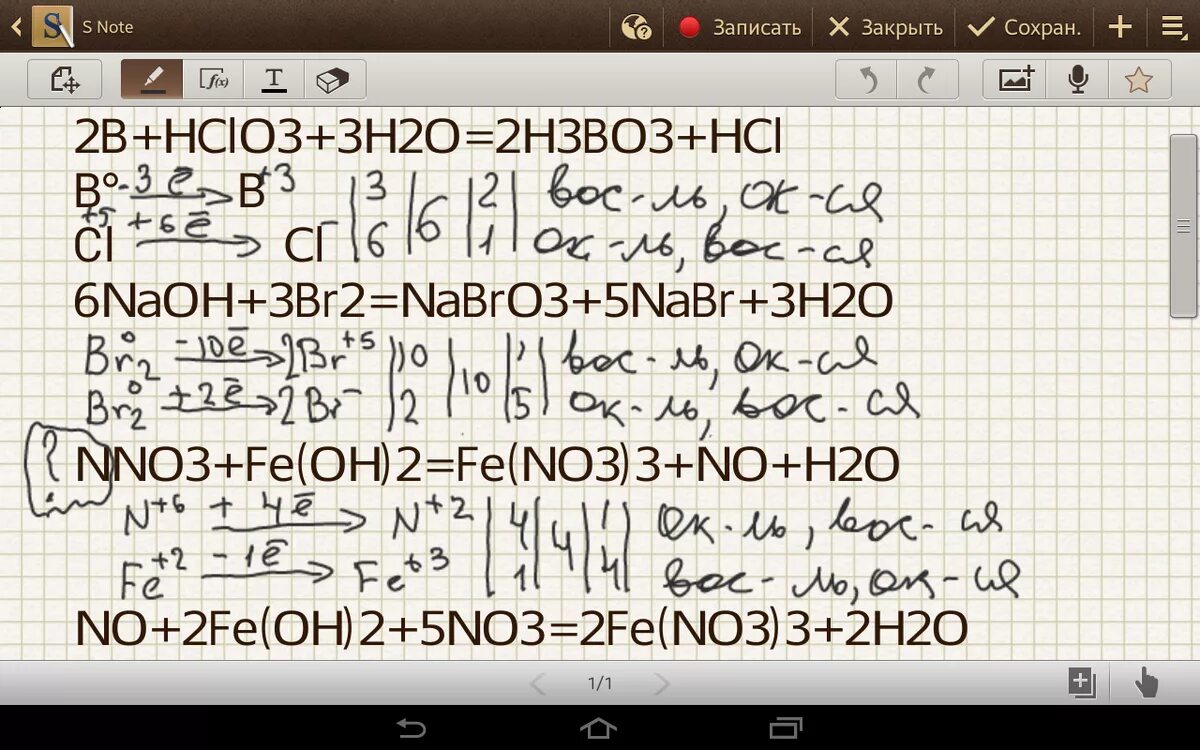 S Note Записать Закрыть Сохран.
2B+HClO3+3H2O=2H3BO3+HCl
B° -3ē → B+3 | 3 | 6 | 2 | вос-ль, ок-ся
Cl+5 +6ē → Cl⁻ | 6 | 1 | ок-ль, вос-ся
6NaOH+3Br2=NaBrO3+5NaBr+3H2O
Br2⁰ -10ē → 2Br+5 | 10 | 10 | 1 | вос-ль, ок-ся
Br2⁰ +2ē → 2Br⁻ | 2 | 5 | ок-ль, вос-ся
? NNO3+Fe(OH)2=Fe(NO3)3+NO+H2O
N+6 + 4ē → N+2 | 4 | 4 | 1 | ок-ль, вос-ся
Fe+2 -1ē → Fe+3 | 1 | 4 | вос-ль, ок-ся
NO+2Fe(OH)2+5NO3=2Fe(NO3)3+2H2O
1/1